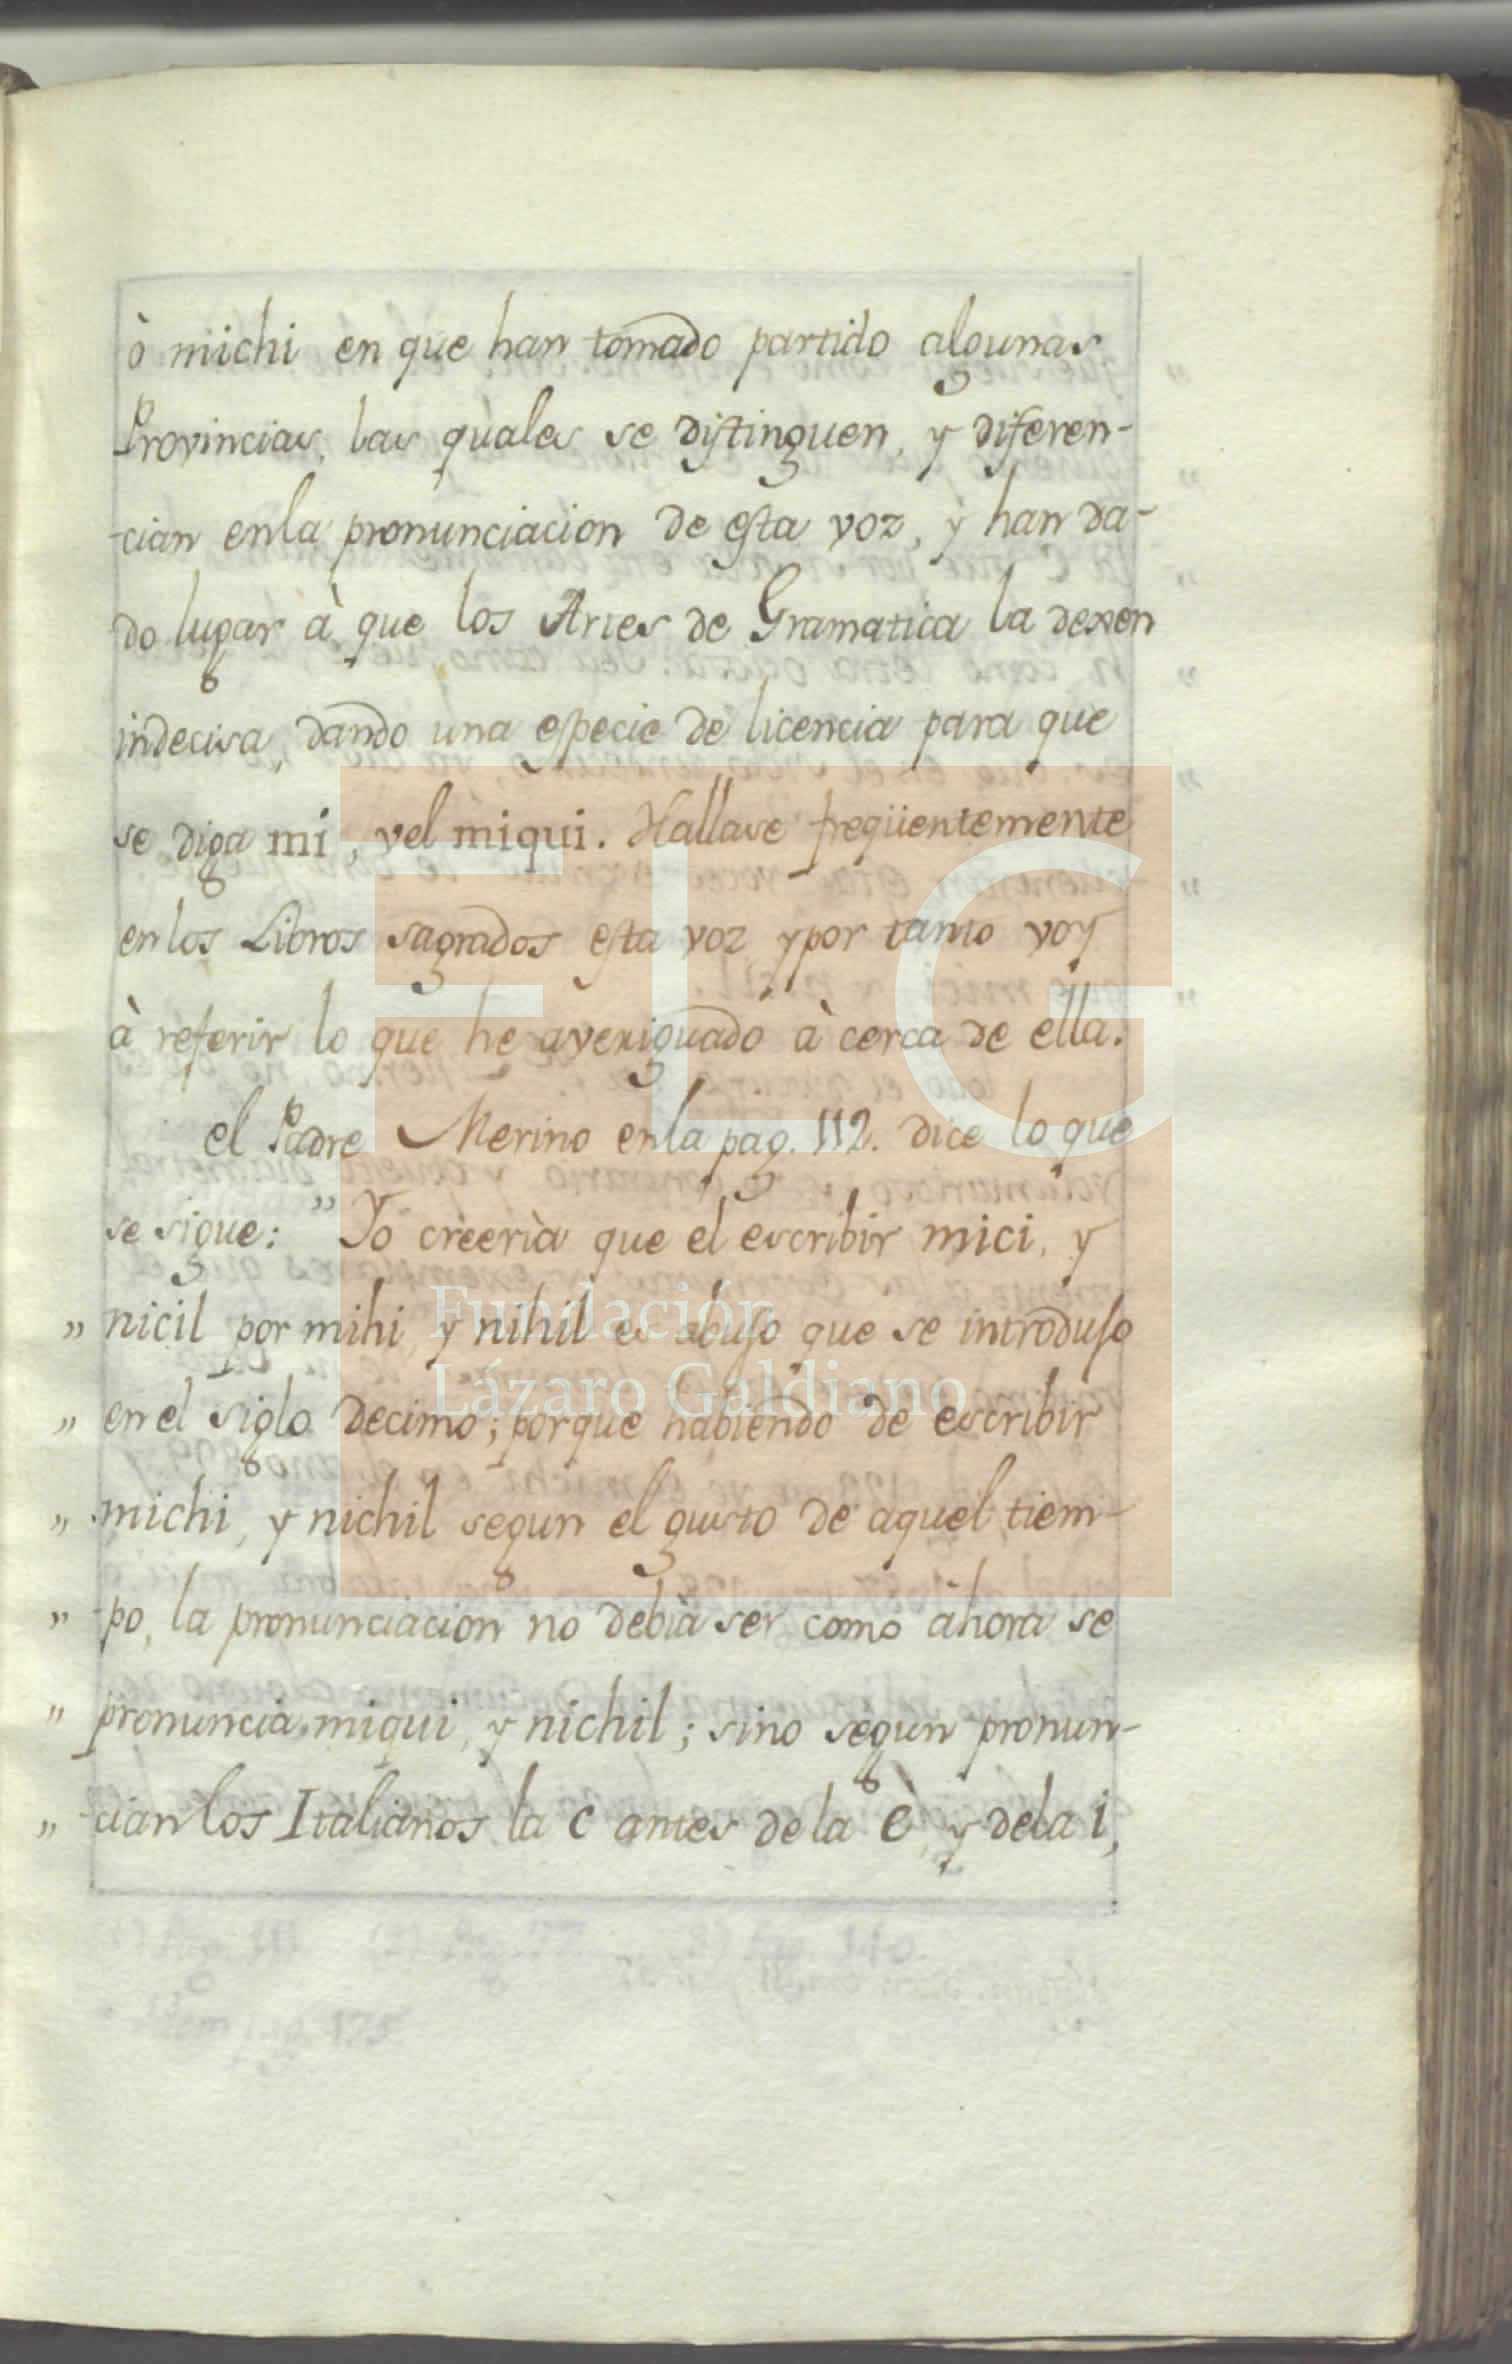 ò michi en que han tomado partido algunas
Provincias, las quales se distinguen, y diferen-
-cian enla pronunciacion de esta voz, y han da-
do lugar à que los Artes de Gramatica la dexen
indecisa, dando una especie de licencia para que
se diga mi, vel miqui. Hallase freqüentemente
en los Libros sagrados esta voz y por tanto voy
à referir lo que he averiguado à cerca de ella.
el Padre Merino enla pag. 112. dice lo que
se sigue: " Yo creerìa que el escribir mici, y
" nicil por mihi, y nihil es abuso que se introduso
" en el siglo decimo; porque habiendo de escribir
" michi, y nichil segun el gusto de aquel tiem-
" -po, la pronunciacion no debìa ser como ahora se
" pronuncia miqui, y nichil; sino segun pronun-
" -cian los Italianos la c antes de la è, y dela i,
FLG
Fundación
Lázaro Galdiano